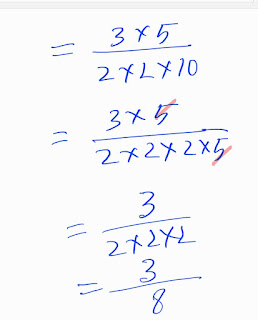 = 3 × 5 / 2 × 2 × 10
= 3 × 5 / 2 × 2 × 2 × 5
= 3 / 2 × 2 × 2
= 3 / 8